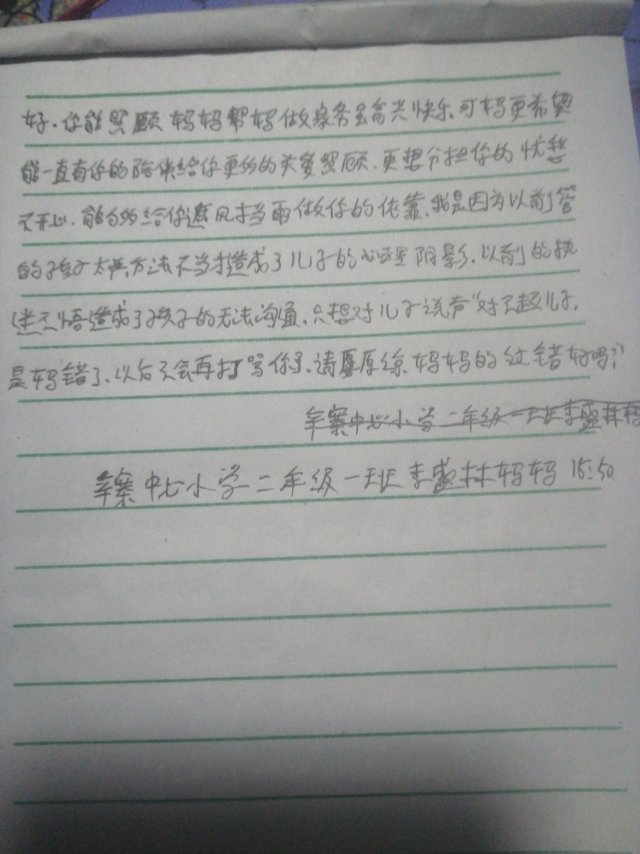 好.你能照顾妈妈帮妈做家务虽高兴快乐.可妈更希望
能一直有你的陪伴给你更多的关爱照顾.更想分担你的忧愁
不开心.能够给你遮风挡雨做你的依靠.我是因为以前管
的孩子太严方法不当才造成了儿子的心理阴影.以前的执
迷不悟造成了孩子的无法沟通.只想对儿子说声"对不起儿子.
是妈错了.以后不会再打骂你了.请原谅妈妈的过错好吗?"
年级一班李盛林妈
中心小学二年级一班李盛林妈妈 15:50